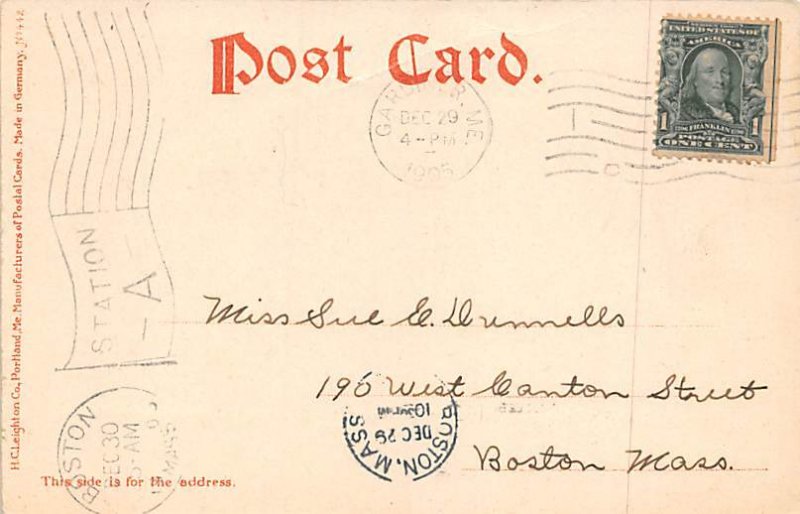 Post Card.
SERIES 1902
UNITED STATES OF
AMERICA
1 FRANKLIN 1
POSTAGE
ONE CENT
GARDINER, ME
DEC 29
4-PM
1905
H.C. Leighton Co., Portland, Me. Manufacturers of Postal Cards. Made in Germany.
STATION
-A-
Miss Sue E. Dunnells
196 West Canton Street
Boston Mass.
BOSTON, MASS
DEC 29
BOSTON
DEC 30
AM
MASS
This side is for the address.